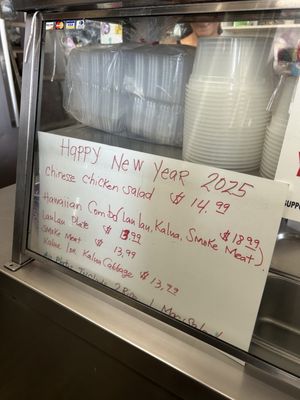 Happy New Year 2025
Chinese chicken salad $14.99
Hawaiian Combo (Lau Lau, Kalua, Smoke Meat) $18.99
Lau Lau Plate $ 13.99
Smoke Meat $ 13.99
Kalua Kalua Cabbage $ 13.99
2 Rice, 1 Mac Salad
SUPPO